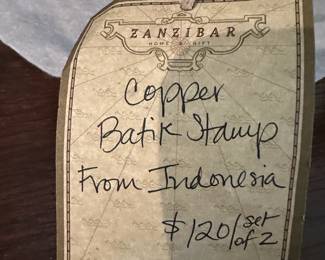 ZANZIBAR
HOME & GIFT
Copper
Batik Stamp
From Indonesia
$120/set
of 2